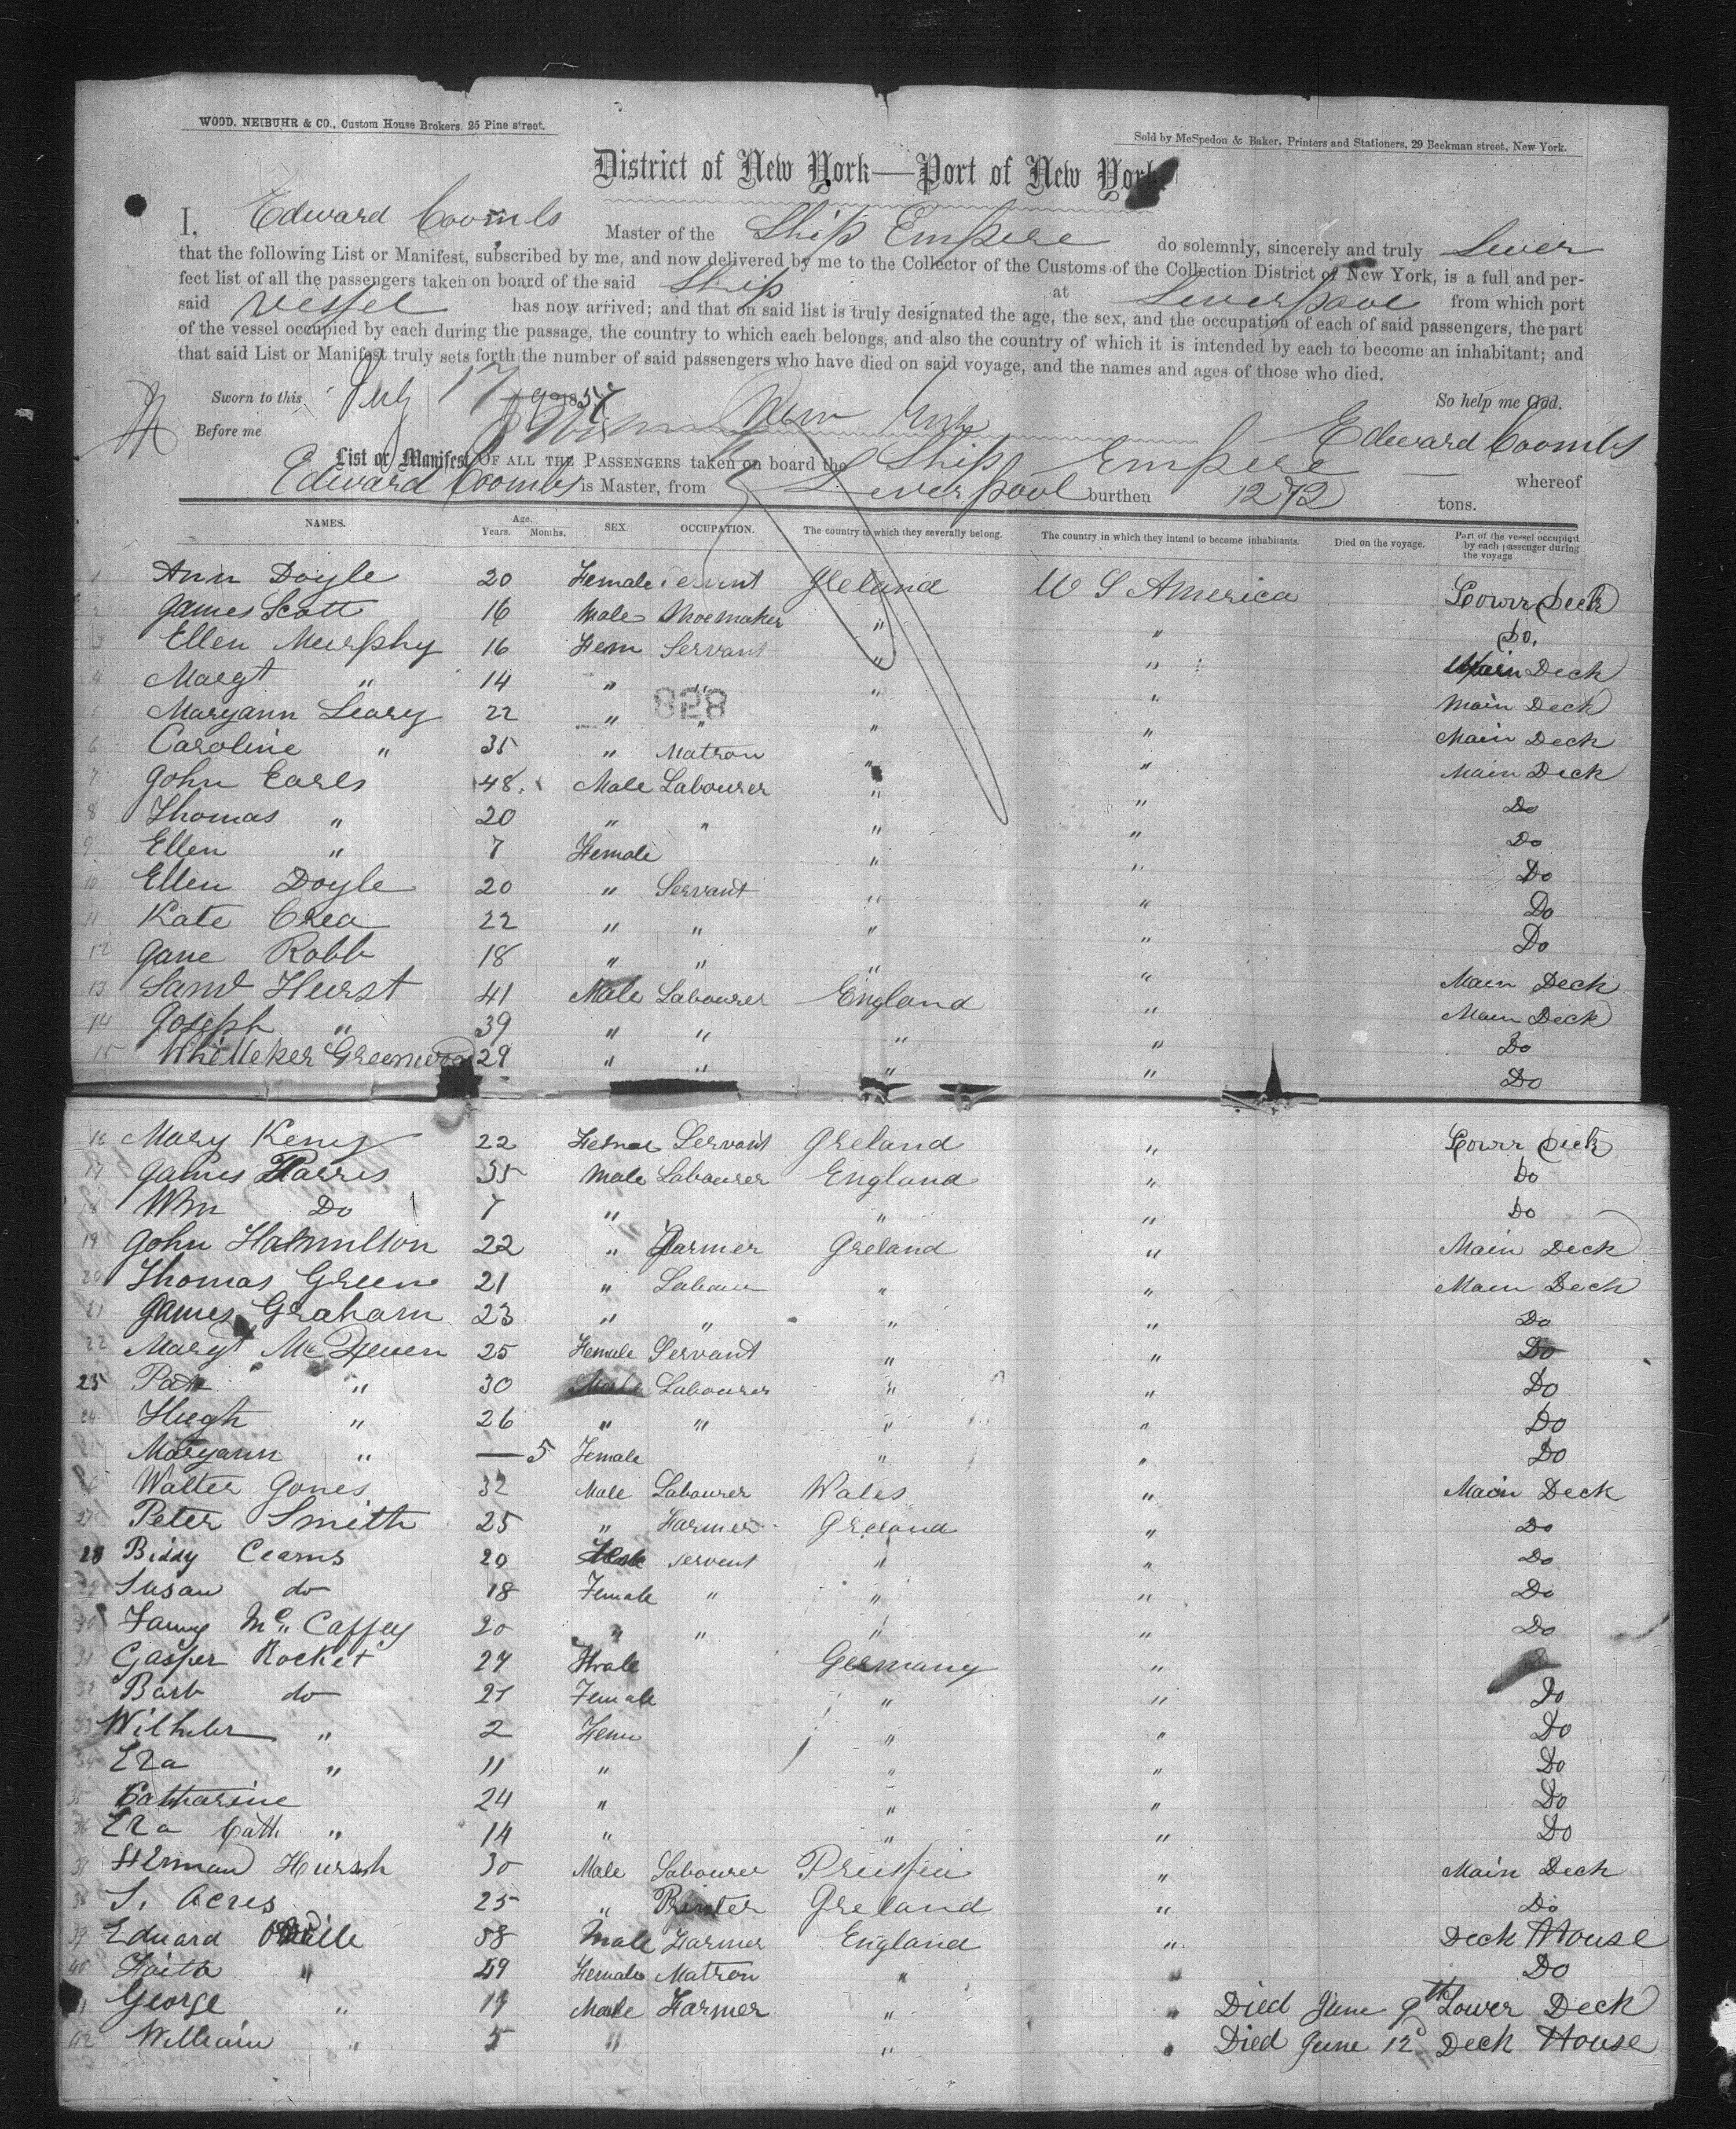 WOOD, NEIBUHR & CO., Custom House Brokers, 25 Pine street.
Sold by McSpedon & Baker, Printers and Stationers, 29 Beekman street, New York.
District of New York—Port of New York.
I, Edward Coombs Master of the Ship Empere do solemnly, sincerely and truly swer
that the following List or Manifest, subscribed by me, and now delivered by me to the Collector of the Customs of the Collection District of New York, is a full and per-
fect list of all the passengers taken on board of the said Ship at Liverpool from which port
said vessel has now arrived; and that on said list is truly designated the age, the sex, and the occupation of each of said passengers, the part
of the vessel occupied by each during the passage, the country to which each belongs, and also the country of which it is intended by each to become an inhabitant; and
that said List or Manifest truly sets forth the number of said passengers who have died on said voyage, and the names and ages of those who died.
Sworn to this July 17 1857 New York So help me God.
Before me Edward Coombs
List or Manifest OF ALL THE PASSENGERS taken on board the Ship Empere whereof
Edward Coombs is Master, from Liverpool burthen 1272 tons.
NAMES. Age. Years. Months. SEX. OCCUPATION. The country to which they severally belong. The country in which they intend to become inhabitants. Died on the voyage. Part of the vessel occupied by each passenger during the voyage
1 Ann Doyle 20 Female Servant Ireland U S America Lower Deck
2 James Scott 16 Male Shoemaker " " Do.
3 Ellen Murphy 16 Fem Servant " " Main Deck
4 Margt " 14 " " " " Main Deck
828
5 Maryann Leary 22 " " " " Main Deck
6 Caroline " 35 " Matron " " Main Deck
7 John Earls 48 Male Labourer " " Do
8 Thomas " 20 " " " " Do
9 Ellen " 7 Female " " Do
10 Ellen Doyle 20 " Servant " " Do
11 Kate Crea 22 " " " " Do
12 Jane Robb 18 " " " " Main Deck
13 Saml Hurst 41 Male Labourer England " Main Deck
14 Joseph " 39 " " " " Do
15 Whitteker Greenwood 29 " " " " Do
16 Mary Keny 22 Female Servant Ireland " Lower Deck
17 James Harris 35 Male Labourer England " Do
18 Wm Do 7 " " " Do
19 John Hammilton 22 " Farmer Ireland " Main Deck
20 Thomas Green 21 " Labour " " Main Deck
21 James Graham 23 " " " " Do
22 Margt McQueen 25 Female Servant " " Do
23 Pat " 30 Male Labourer " " Do
24 Hugh " 26 " " " " Do
25 Maryann " — 5 Female " " Do
26 Walter Jones 32 Male Labourer Wales " Main Deck
27 Peter Smith 25 " Farmer Ireland " Do
28 Biddy Cearns 20 servent " " Do
29 Susan do 18 Female " " " Do
30 Fanny Mc Caffey 20 " " " " Do
31 Gasper Rocket 27 Male Germany "
32 Barb do 27 Female " " Do
33 Wilhelm " 2 Fem " " Do
34 Eva " 11 " " " Do
35 Catharine 24 " " " Do
36 Eva Cath " 14 " " " Do
37 Herman Hursh 30 Male Labourer Prussia " Main Deck
38 S. Acres 25 " Printer Ireland " Do
39 Edward 58 Male Farmer England " Deck House
40 Faith " 59 Female Matron " " Do
41 George " 19 Male Farmer " " Died June 9th Lower Deck
42 William " 5 " " " Died June 12 Deck House